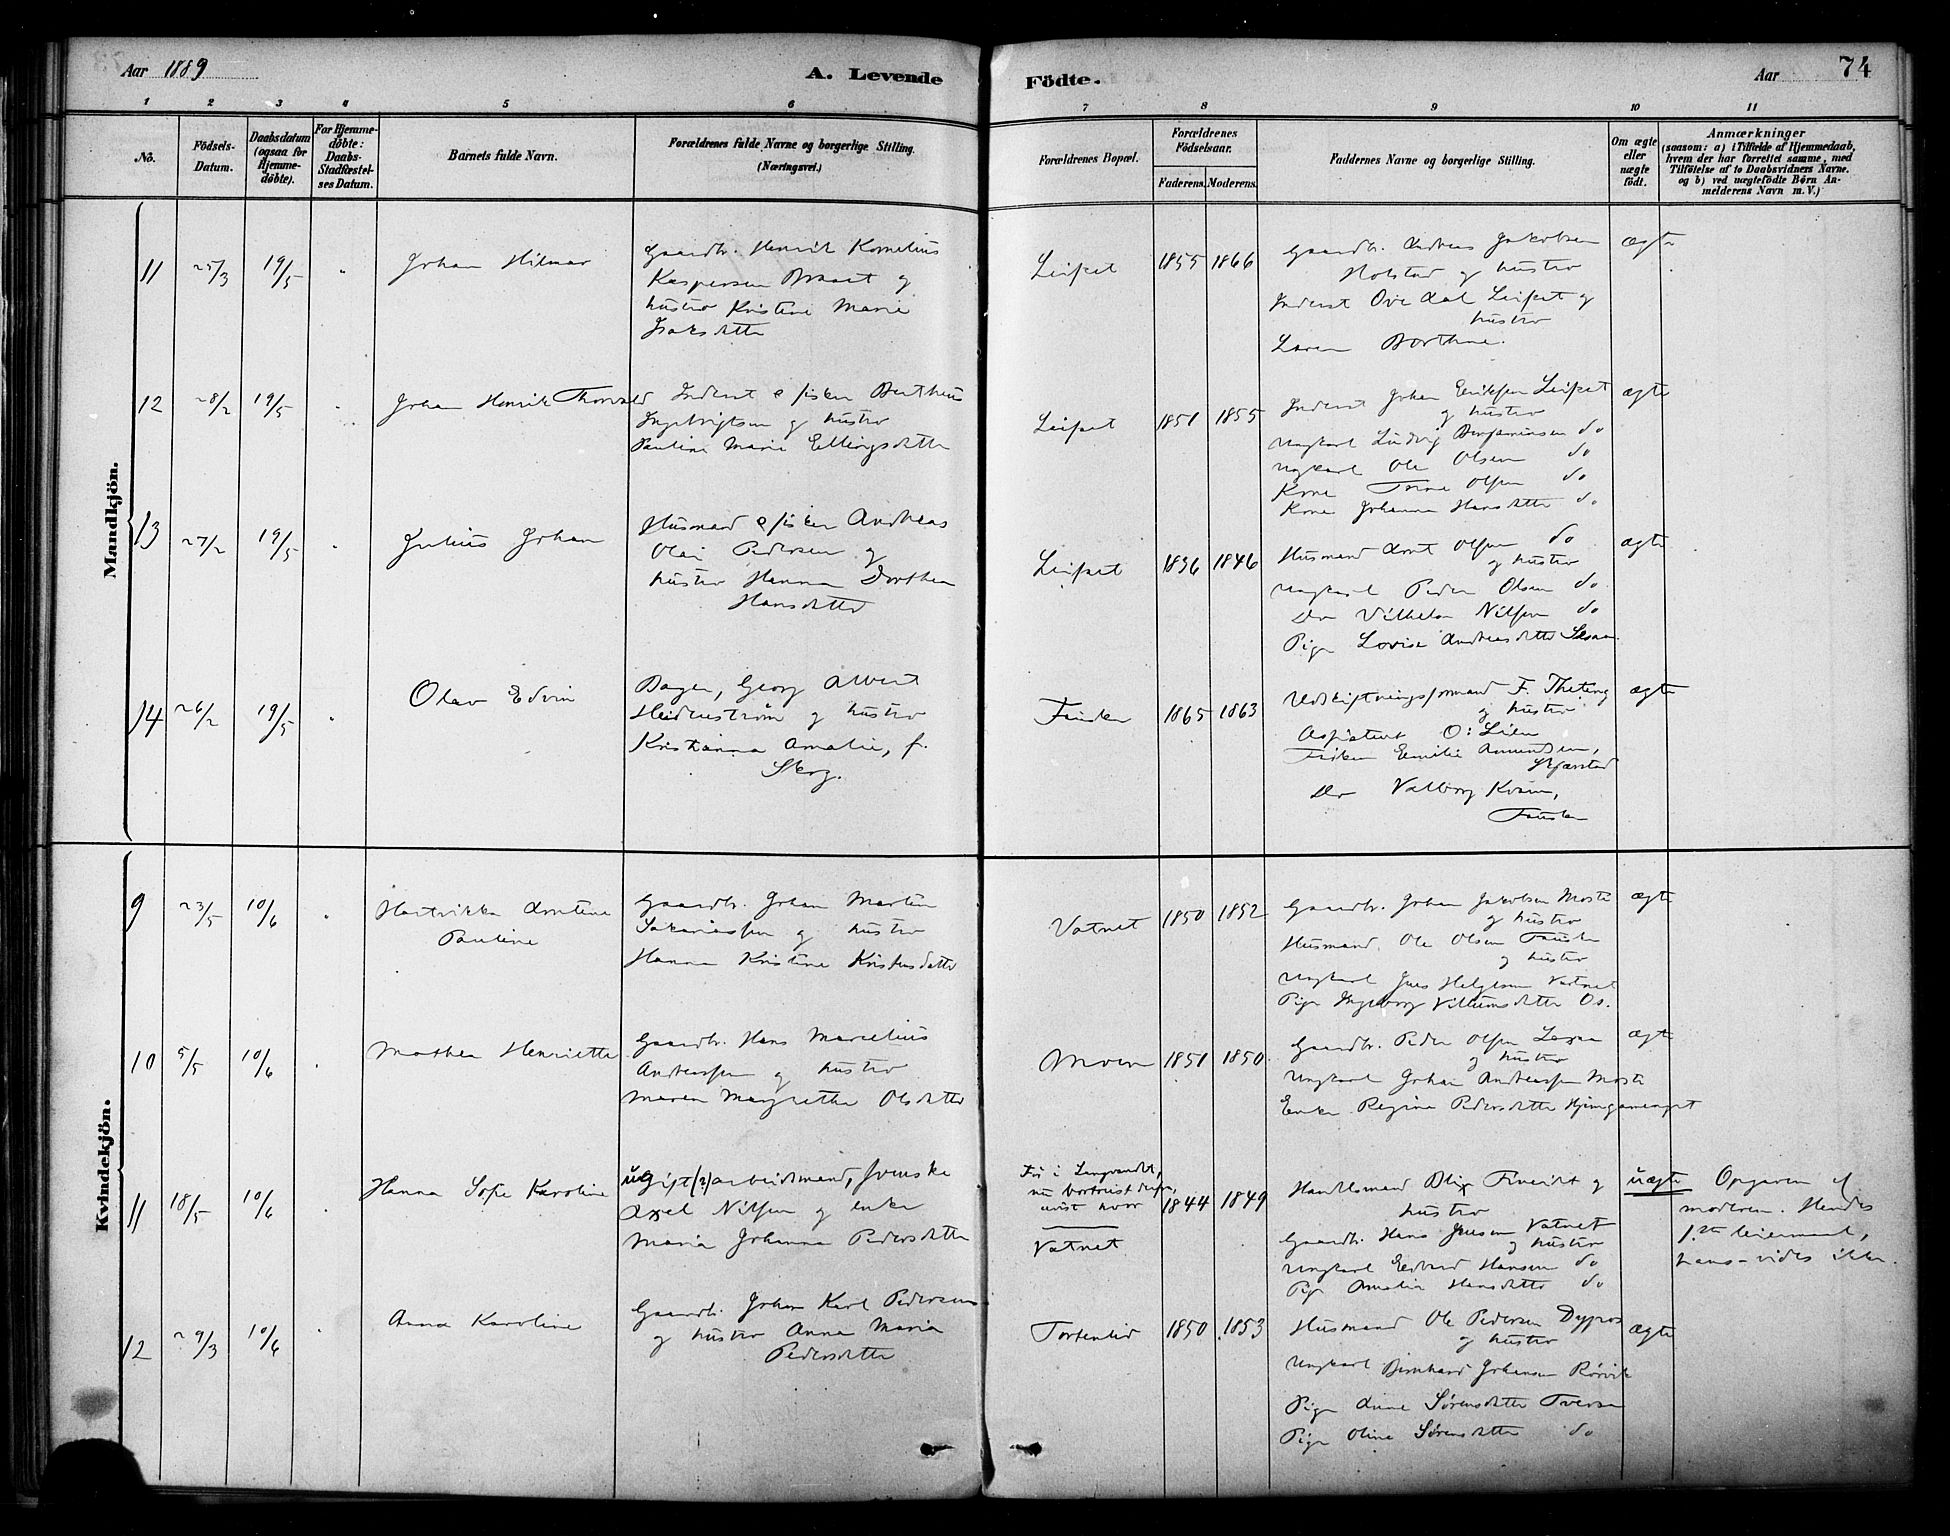 Aar 1889
A. Levende
Födte.
Aar
74
1 2 3 4 5 6 7 8 9 10 11
No.
Födsels-Datum.
Daabsdatum (ogsaa for Hjemme-döbte).
For Hjemme-döbte: Daabs-Stadfæstel-ses Datum.
Barnets fulde Navn.
Forældrenes fulde Navne og borgerlige Stilling.
(Næringsvei.)
Forældrenes Bopæl.
Forældrenes Födselsaar.
Faderens. Moderens.
Faddernes Navne og borgerlige Stilling.
Om ægte eller uægte födt.
Anmærkninger
(saasom: a) i Tilfælde af Hjemmedaab, hvem der har forrettet samme, med Tilföielse af to Daabsvidners Navne. og b) ved uægtefödte Börn An-melderens Navn m. V.)
Mandkjön.
11 25/3 19/5 " Johan Hilmar
Gaardbr. Henrik Kornelius
Kaspersen og
hustro Kristine Marie
Isaksdatter
Leifset 1855 1866
Gaardbr. Andreas Jakobsen
Holstad og hustro
Inderst Ove Dal Leifset og
hustro
ægte
12 28/2 19/5 " Johan Henrik Thorvald
Inderst & fisker Bertheus
Ingebrigtsen og hustro
Pauline Marie Ellingsdatter
Leifset 1851 1855
Inderst Johan Eriksen Leifset
og hustro
Ungkarl Ludvig Benjaminsen do
Ungkarl Ole Olsen do
Kone Trine Olsen do
Kone Johanna Hansdatter do
ægte
13 27/2 19/5 " Julius Johan
Husmand & fisker Andreas
Olai Pedersen og
hustro Hanna Dorthea
Hansdatter
Leifset 1836 1846
Husmand Arnt Olsen do
og hustro
Ungkarl Peder Olsen do
Do Vilhelm Nilsen do
Pige Lovise Andreasdatter
ægte
14 26/2 19/5 " Olav Edvin
Bager, Georg Albert
Heidenstrøm og hustro
Kristianna Amalie, f.
Skog.
Fauske 1865 1863
Udskiftningsformand F. Theting
og hustro
Aspirant O: Lien
Frøken Emilie Amundsen,
Skjærstad
Do Valborg Kosmo,
Fauske
ægte
Kvindekjön.
9 23/5 10/6 " Hartvikka Arntine
Pauline
Gaardbr. Johan Martin
Sakariassen og hustro
Hanna Kristine Kristensdatter
Vatnet 1850 1852
Gaardbr. Johan Jakobsen Moste
og hustro
Husmand Ole Olsen Fauske
og hustro
Ungkarl Jens Helgesen Vatnet
Pige Ingeborg Villumsdatter Os.
ægte
10 5/5 10/6 " Mathea Henriette
Gaardbr. Hans Marcelius
Andreassen og hustro
Maren Margrethe Olsdatter
Moen 1851 1850
Gaardbr. Peder Olsen
og hustro
Ungkarl Johan Andreassen Moste
Enke Regine Pedersdatter Hjemgamenget
ægte
11 18/5 10/6 Hanna Sofie Karoline
ugift (?) arbeidsmand, svenske
Axel Nilsen og enke
Maria Johanna Pedersdatter
Før i Langvandet,
nu bortreist derfra,
uvist hvor
Vatnet
1844 1849
Handelsmand Blix Fineidet og
hustro
Gaardbr. Hans Jensen Vatnet
og hustro
Ungkarl Edvard Hansen do
Pige Amalia Hansdatter do
uægte
Opgiven af
moderen. Hendes
1ste leiermaal,
hans vides ikke.
12 29/3 10/6 " Anna Karoline
Gaardbr. Johan Karl Pedersen
og hustro Anna Maria
Pedersdatter
Tortenlid 1850 1853
Husmand Ole Pedersen Dypvos
og hustro
Ungkarl Bernhard Johansen Rørvik
Pige Anne Sørensdatter Tveraa
Pige Oline Sørensdatter do
ægte